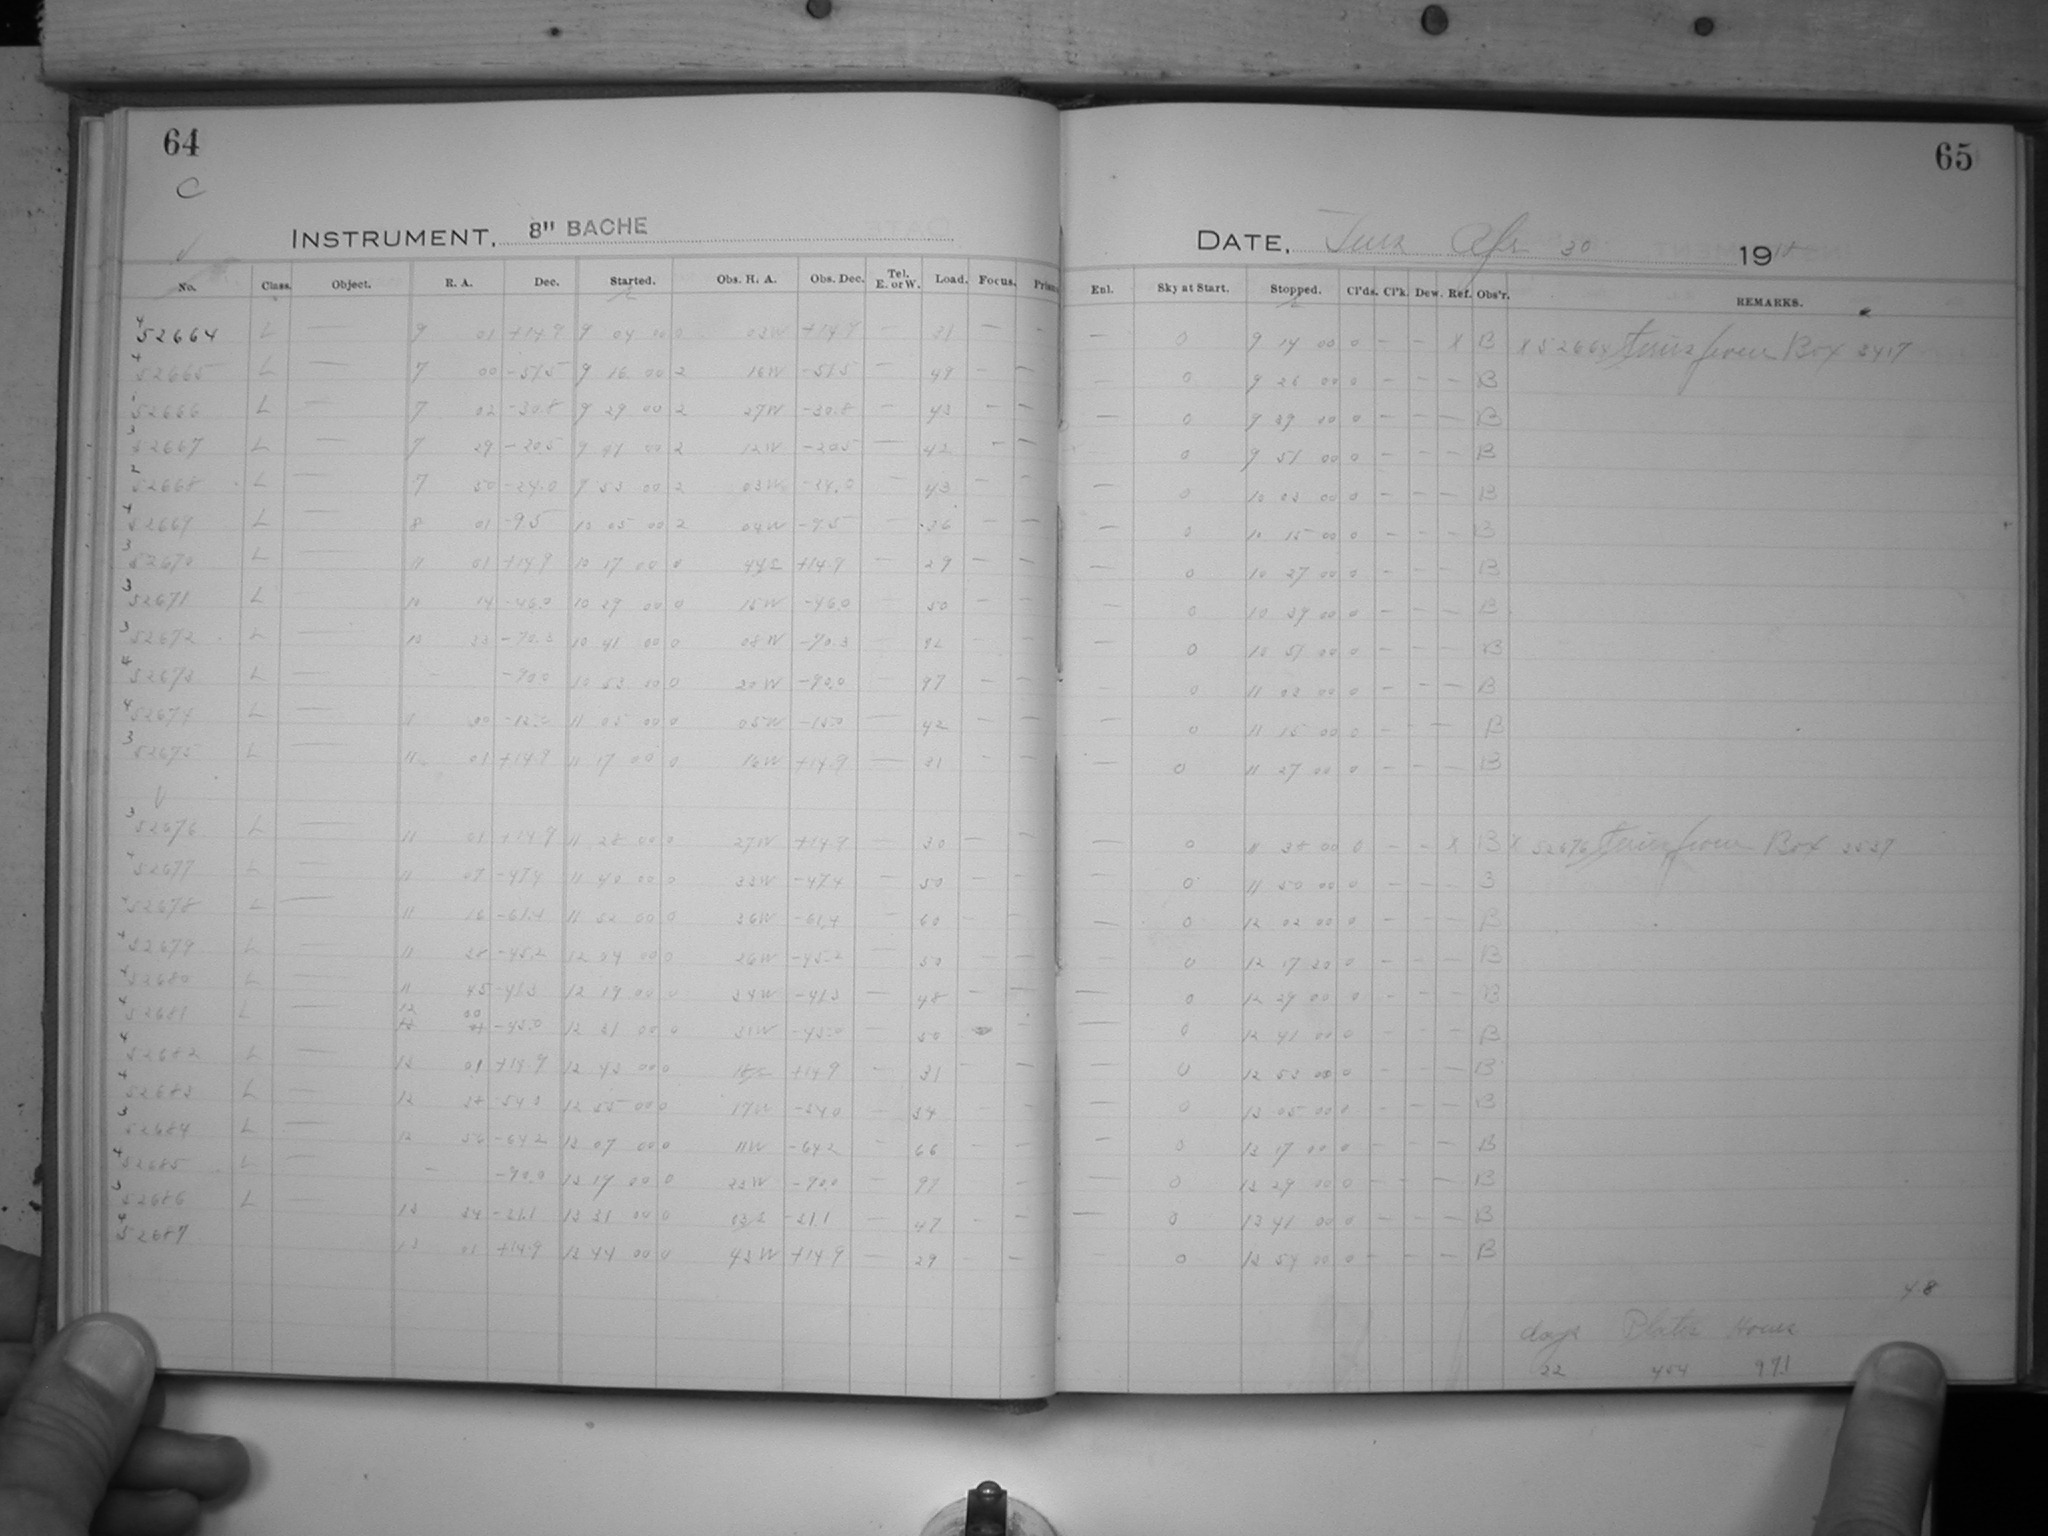 64
C
INSTRUMENT, 8" BACHE
No. Class. Object. R. A. Dec. Started. Obs. H. A. Obs. Dec. Tel. E. or W. Load. Focus.
4 52664 L — 9 01 +14.9 9 04 00 0 03W +14.9 — 31 — —
4 52665 L — 7 00 -51.5 9 16 00 2 16W -51.5 — 49 — —
52666 L — 7 02 -30.8 9 29 00 2 27W -30.8 — 43 — —
3 52667 L — 7 29 -20.5 9 41 00 2 12W -20.5 — 42 — —
2 52668 L — 7 50 -24.0 9 53 00 2 03W -24.0 — 43 — —
4 52669 L — 8 01 -9.5 10 05 00 2 04W -9.5 — 36 — —
3 52670 L — 11 01 +14.9 10 17 00 0 44E +14.9 — 29 — —
3 52671 L — 10 14 -46.0 10 29 00 0 15W -46.0 — 50 — —
3 52672 L — 10 33 -70.3 10 41 00 0 08W -70.3 — 92 — —
4 52673 L — - -90.0 10 53 00 0 20W -90.0 — 97 — —
4 52674 L — 11 00 11 05 00 0 05W — 42 — —
3 52675 L — 11 01 +14.9 11 17 00 0 16W +14.9 — 31 — —
3 52676 L — 11 01 +14.9 11 28 00 0 27W +14.9 — 30 — —
52677 L — 11 07 -47.4 11 40 00 0 33W -47.4 — 50 — —
52678 L — 11 16 -61.4 11 52 00 0 36W -61.4 — 60 — —
52679 L — 11 38 -45.2 12 04 00 0 26W -45.2 — 50 — —
52680 L — 11 45 -41.3 12 19 00 0 34W -41.3 — 48 — —
4 52681 L — 12 00 -45.0 12 31 00 0 31W -45.0 — 50
4 52682 L — 13 01 +14.9 12 43 00 0 18E +14.9 — 31 — —
4 52683 L — 12 38 -54.0 12 55 00 0 17W -54.0 — 54 — —
3 52684 L — 12 56 -64.2 13 07 00 0 11W -64.2 — 66 — —
4 52685 L — - -90.0 13 19 00 0 23W -90.0 — 97 —
3 52686 L — 13 34 -31.1 13 31 00 0 03E -31.1 — 47 — —
4 52687 13 01 +14.9 13 44 00 0 43W +14.9 — 29 — —
65
DATE, Tues Apr 30 1918
Enl. Sky at Start. Stopped. Cl'ds. Cl'k. Dew. Ref. Obs'r. REMARKS.
— 0 9 14 00 0 - - X B X 52664 Trius from Box 3417
— 0 9 26 00 0 - - - B
— 0 9 39 00 0 - - - B
0 9 51 00 0 - - - B
— 0 10 03 00 0 - - - B
— 0 10 15 00 0 - - - B
— 0 10 27 00 0 - - - B
— 0 10 39 00 0 - - - B
— 0 10 51 00 0 - - - B
— 0 11 03 00 0 - - - B
— 0 11 15 00 0 - - - B
— 0 11 27 00 0 - - - B
— 0 11 38 00 0 - - X B X 52676 Trius from Box 3537
— 0 11 50 00 0 - - - B
— 0 12 02 00 0 - - - B
— 0 12 17 30 0 - - - B
— 0 12 29 00 0 - - - B
— 0 12 41 00 0 - - - B
— 0 12 53 00 0 - - - B
— 0 13 05 00 0 - - - B
— 0 13 17 00 0 - - - B
— 0 13 29 00 0 - - - B
— 0 13 41 00 0 - - - B
— 0 13 54 00 0 - - - B
4.8
days Plates Hours
22 454 97.1